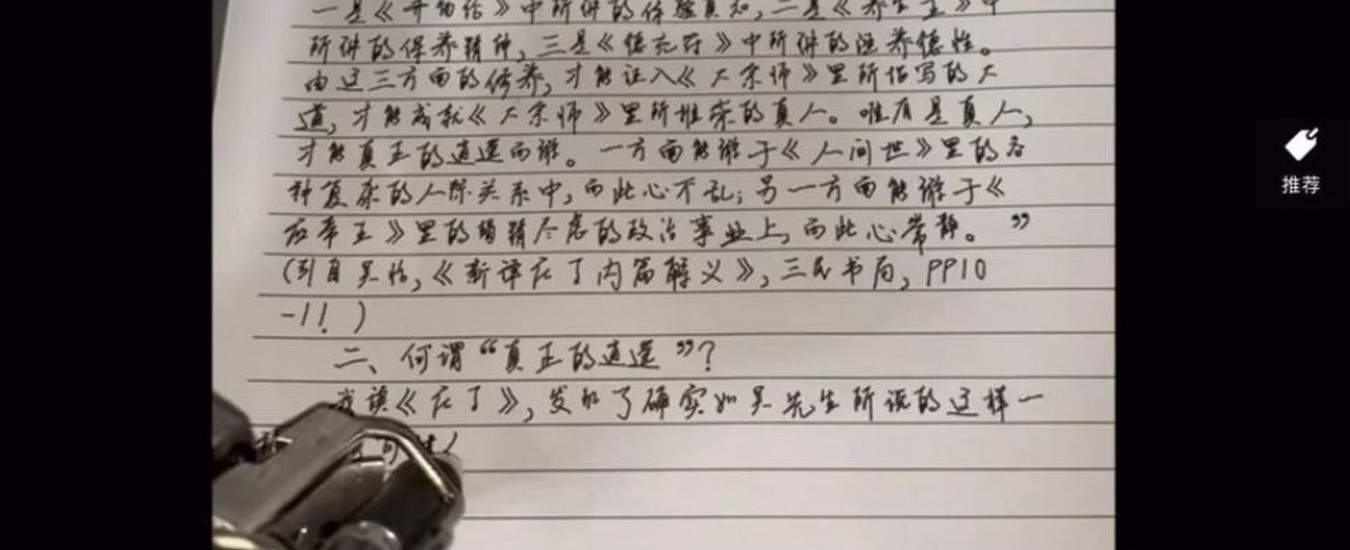 一是《齐物论》中所讲的体验真知，二是《养生主》中
所讲的保养精神，三是《德充符》中所讲的涵养德性。
由这三方面的修养，才能证入《大宗师》里所描写的大
道，才能成就《大宗师》里所推崇的真人。唯有是真人，
才能真正的逍遥而游。一方面能游于《人间世》里的各
种复杂的人际关系中，而此心不乱；另一方面能游于《
应帝王》里的竭精尽虑的政治事业上，而此心常静。”
（引自吴怡，《新译庄子内篇解义》，三民书局，PP10
-11）
二、何谓“真正的逍遥”？
我读《庄子》，发现了确实如吴先生所说的这样一
推荐